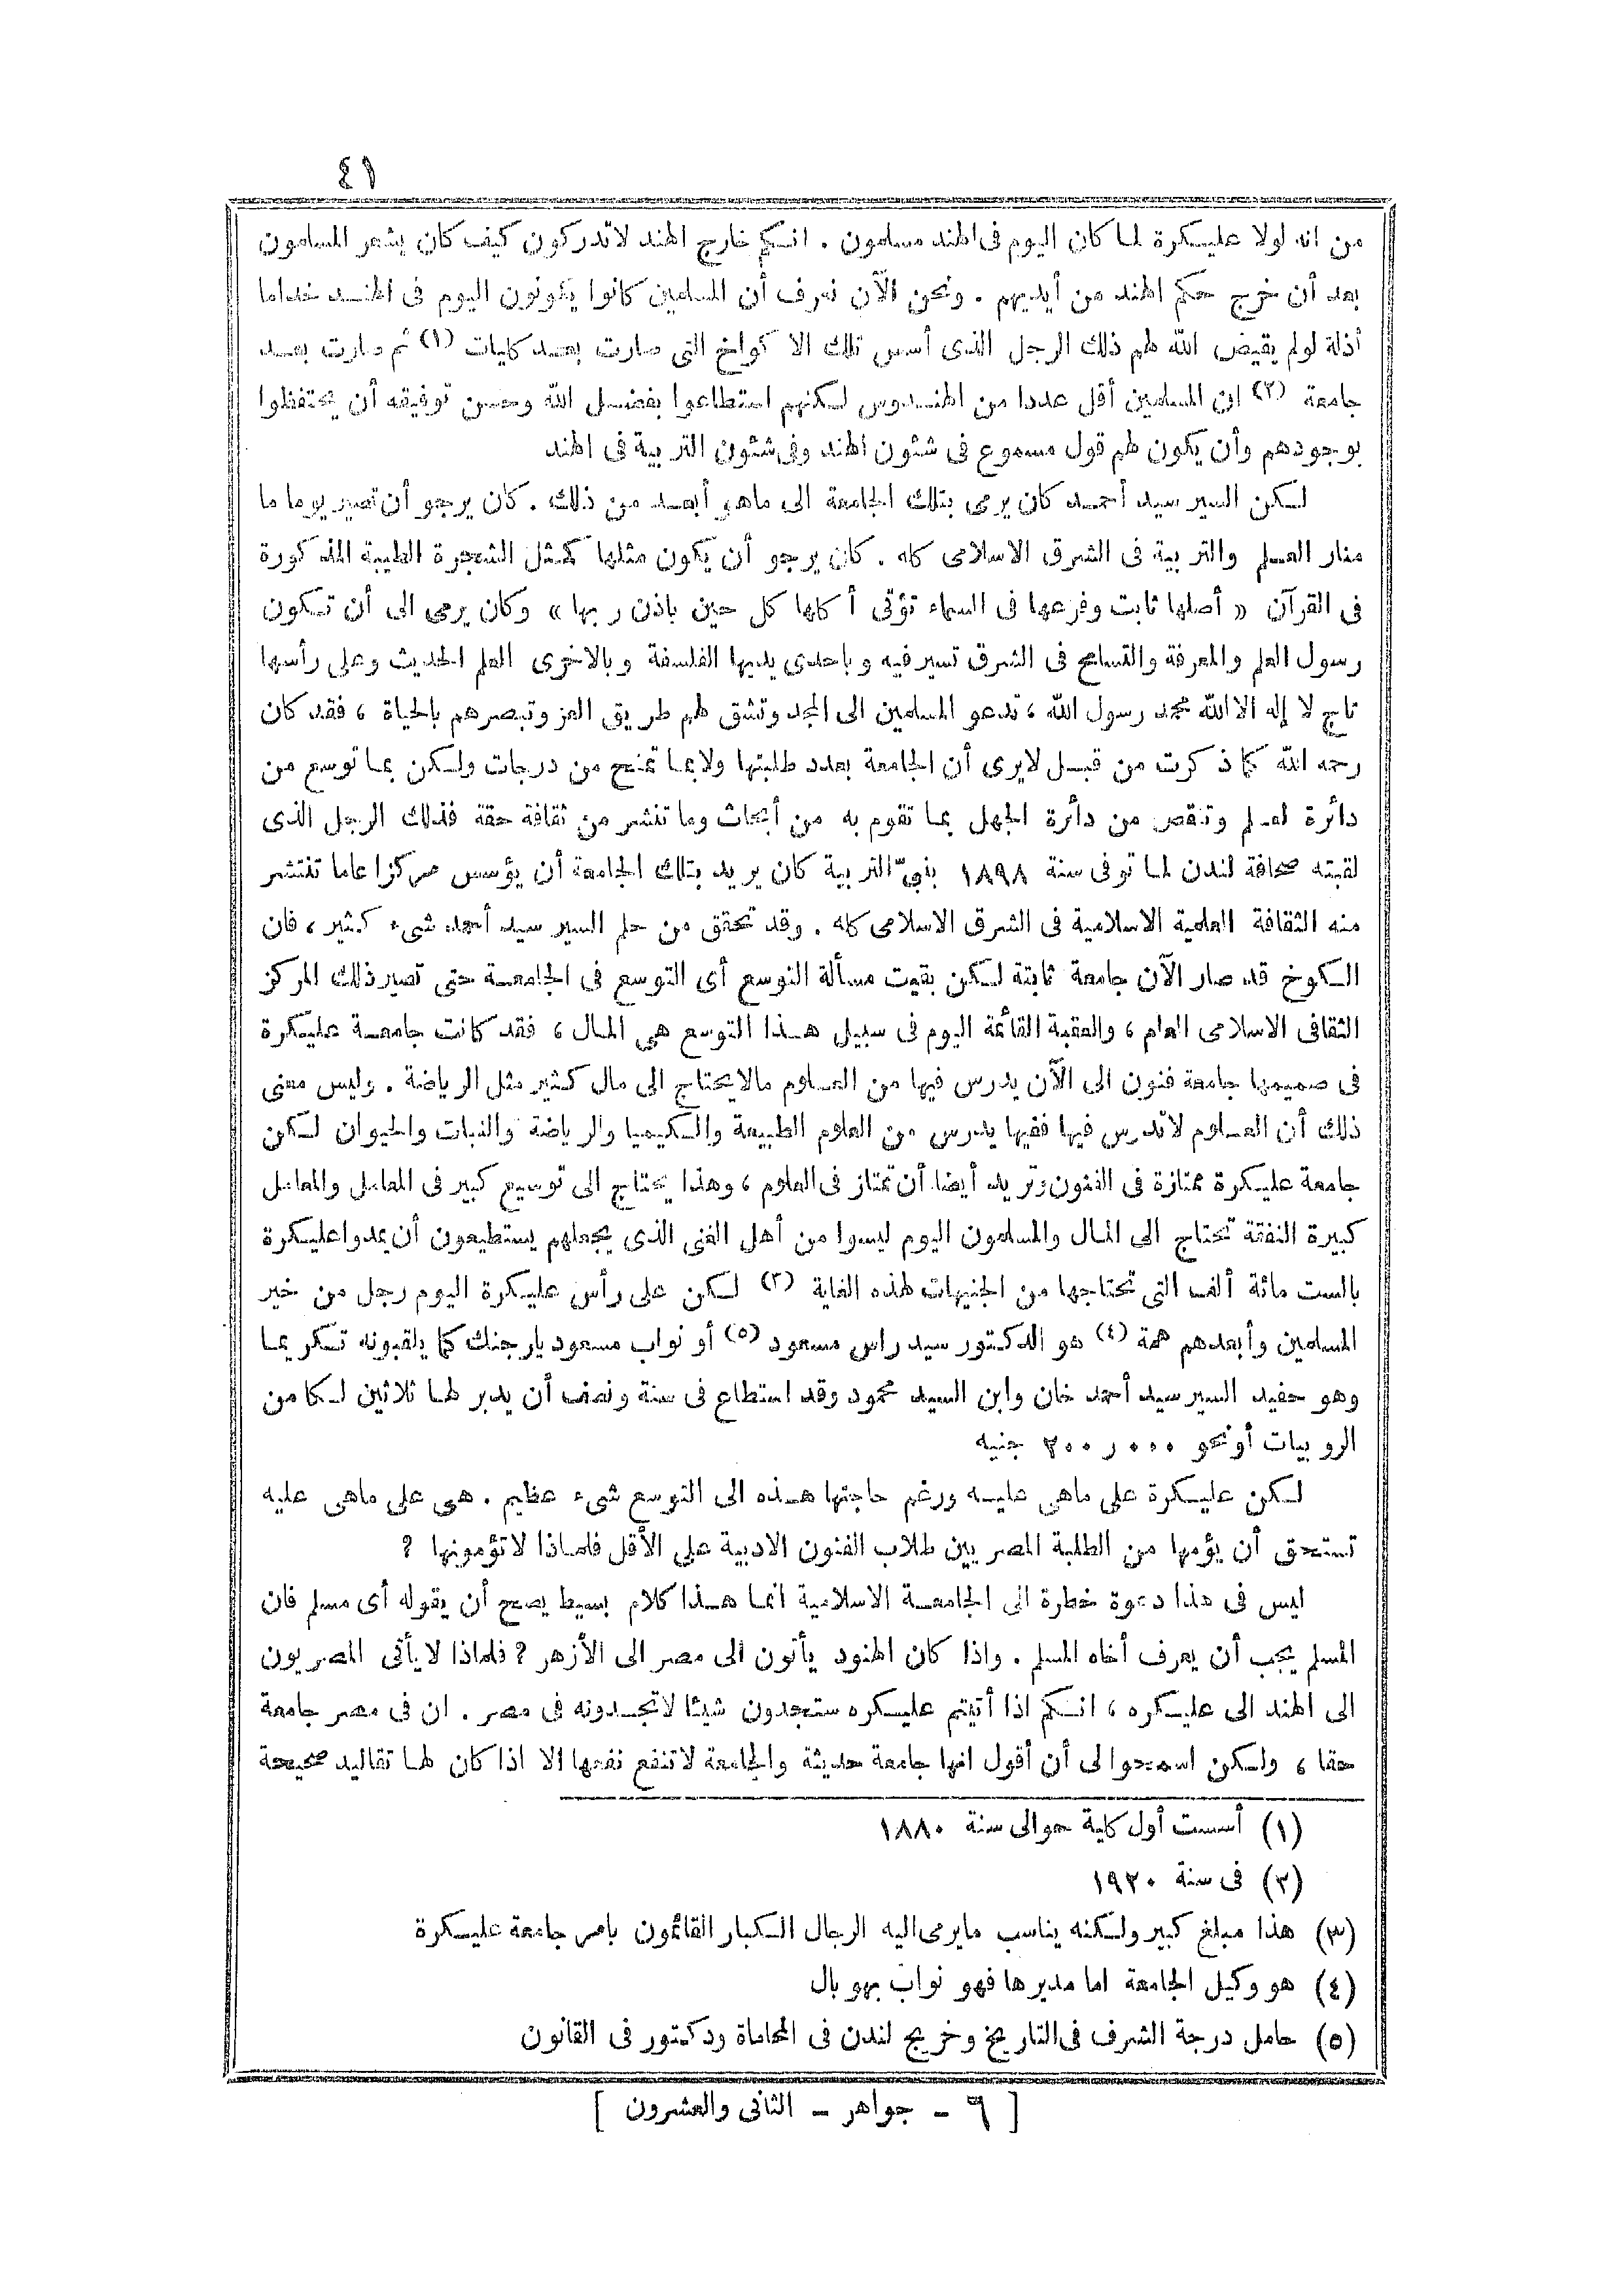 ٤١
من انه لولا عليكرة لما كان اليوم فى الهند مسلمون . انكم خارج الهند لاتدركون كيف كان يشعر المسلمون
بعد أن خرج حكم الهند من أيديهم . ونحن الآن نعرف أن المسلمين كانوا يكونون اليوم فى الهند خداما
أذلة لولم يقيض الله لهم ذلك الرجل الذى أسس تلك الا كواخ التى صارت بعد كليات (١) ثم صارت بعد
جامعة (٢) ان المسلمين أقل عددا من الهندوس لكنهم استطاعوا بفضل الله وحسن توفيقه أن يحتفظوا
بوجودهم وأن يكون لهم قول مسموع فى شئون الهند وفى شئون التربية فى الهند
لكن السير سيد أحمد كان يرمى بتلك الجامعة الى ماهو أبعد من ذلك . كان يرجو أن تصير يوما ما
منار العلم والتربية فى الشرق الاسلامى كله . كان يرجو أن يكون مثلها كمثل الشجرة الطيبة المذكورة
فى القرآن « أصلها ثابت وفرعها فى السماء تؤتى أكلها كل حين باذن ربها » وكان يرمى الى أن تكون
رسول العلم والمعرفة والتسامح فى الشرق تسير فيه وباحدى يديها الفلسفة وبالاخرى العلم الحديث وعلى رأسها
تاج لا إله الا الله محمد رسول الله ، تدعو المسلمين الى المجد وتشق لهم طريق العز وتبصرهم بالحياة ، فقد كان
رحمه الله كما ذكرت من قبل لايرى أن الجامعة بعدد طلبتها ولابما تمنح من درجات ولكن بما توسع من
دائرة لعلم وتنقص من دائرة الجهل بما تقوم به من أبحاث وما تنشر من ثقافة حقة فذلك الرجل الذى
لقبته صحافة لندن لما توفى سنة ١٨٩٨ بنبىّ التربية كان يريد بتلك الجامعة أن يؤسس مركزا عاما تنتشر
منه الثقافة العلمية الاسلامية فى الشرق الاسلامى كله . وقد تحقق من حلم السير سيد أحمد شىء كثير ، فان
الكوخ قد صار الآن جامعة ثابتة لكن بقيت مسألة التوسع أى التوسع فى الجامعة حتى تصير ذلك المركز
الثقافى الاسلامى العام ، والعقبة القائمة اليوم فى سبيل هذا التوسع هى المال ، فقد كانت جامعة عليكرة
فى صميمها جامعة فنون الى الآن يدرس فيها من العلوم مالايحتاج الى مال كثير مثل الرياضة . وليس معنى
ذلك أن العلوم لاتدرس فيها ففيها يدرس من العلوم الطبيعة والكيميا والرياضة والنبات والحيوان لكن
جامعة عليكرة ممتازة فى الفنون وتريد أيضا أن تمتاز فى العلوم ، وهذا يحتاج الى توسيع كبير فى المعامل والمعامل
كبيرة النفقة تحتاج الى المال والمسلمون اليوم ليسوا من أهل الغنى الذى يجعلهم يستطيعون أن يمدوا عليكرة
بالست مائة ألف التى تحتاجها من الجنيهات لهذه الغاية (٣) لكن على رأس عليكرة اليوم رجل من خير
المسلمين وأبعدهم همة (٤) هو الدكتور سيد راس مسعود (٥) أو نواب مسعود يارجنك كما يلقبونه تكريما
وهو حفيد السير سيد أحمد خان وابن السيد محمود وقد استطاع فى سنة ونصف أن يدبر لها ثلاثين لكا من
الروبيات أونحو ٢٠٠ر٠٠٠ جنيه
لكن عليكرة على ماهى عليه ورغم حاجتها هذه الى التوسع شىء عظيم . هى على ماهى عليه
تستحق أن يؤمها من الطلبة المصريين طلاب الفنون الادبية على الأقل فلماذا لاتؤمونها ؟
ليس فى هذا دعوة خطرة الى الجامعة الاسلامية انما هذا كلام بسيط يصح أن يقوله أى مسلم فان
المسلم يجب أن يعرف أخاه المسلم . واذا كان الهنود يأتون الى مصر الى الأزهر ؟ فلماذا لايأتى المصريون
الى الهند الى عليكره ، انكم اذا أتيتم عليكره ستجدون شيئا لاتجدونه فى مصر . ان فى مصر جامعة
حقا ، ولكن اسمحوا لى أن أقول انها جامعة حديثة والجامعة لاتنفع نفعها الا اذا كان لها تقاليد صحيحة
(١) أسست أول كلية حوالى سنة ١٨٨٠
(٢) فى سنة ١٩٢٠
(٣) هذا مبلغ كبير ولكنه يناسب مايرمى اليه الرجال الكبار القائمون بامر جامعة عليكرة
(٤) هو وكيل الجامعة اما مديرها فهو نواب بهوبال
(٥) حامل درجة الشرف فى التاريخ وخريج لندن فى المحاماة ودكتور فى القانون
[ ٦ - جواهر - الثانى والعشرون ]